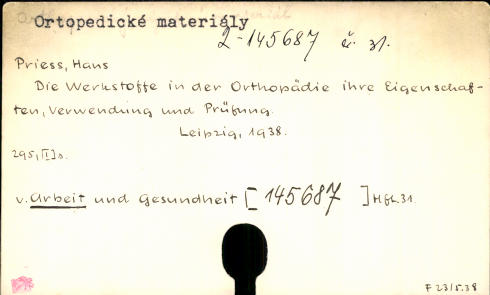 Ortopedické materiály
2-145687 č. 31.
Priess, Hans
Die Werkstoffe in der Orthopädie ihre Eigenschaf-
ten, Verwendung und Prüfung.
Leipzig, 1938.
295, [I] s.
v. Arbeit und Gesundheit [ 145687 ] Hft. 31.
F 23/5.38